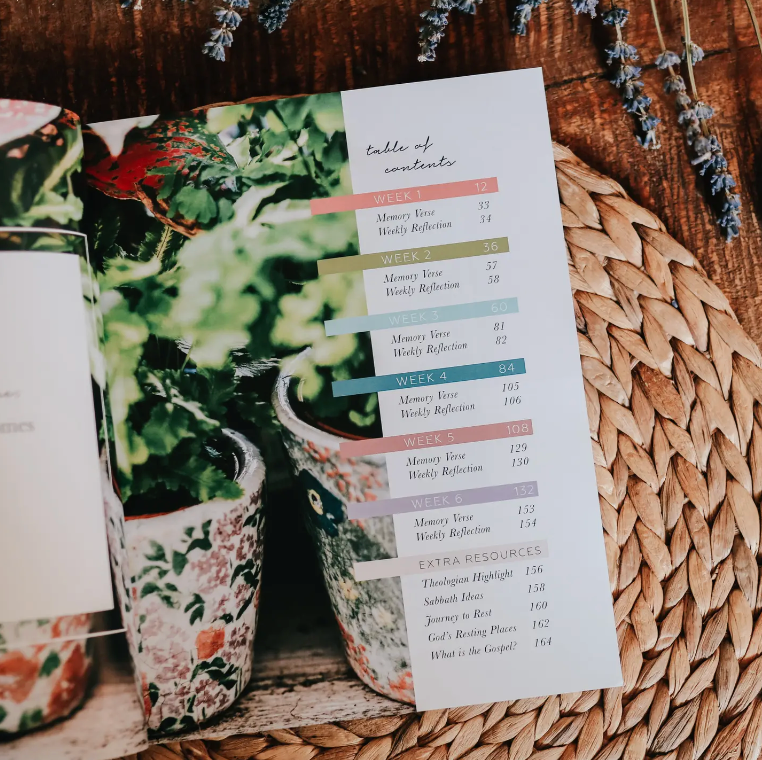 table of
contents
WEEK 1 12
Memory Verse 33
Weekly Reflection 34
WEEK 2 36
Memory Verse 57
Weekly Reflection 58
WEEK 3 60
Memory Verse 81
Weekly Reflection 82
WEEK 4 84
Memory Verse 105
Weekly Reflection 106
WEEK 5 108
Memory Verse 129
Weekly Reflection 130
WEEK 6 132
Memory Verse 153
Weekly Reflection 154
EXTRA RESOURCES
Theologian Highlight 156
Sabbath Ideas 158
Journey to Rest 160
God's Resting Places 162
What is the Gospel? 164